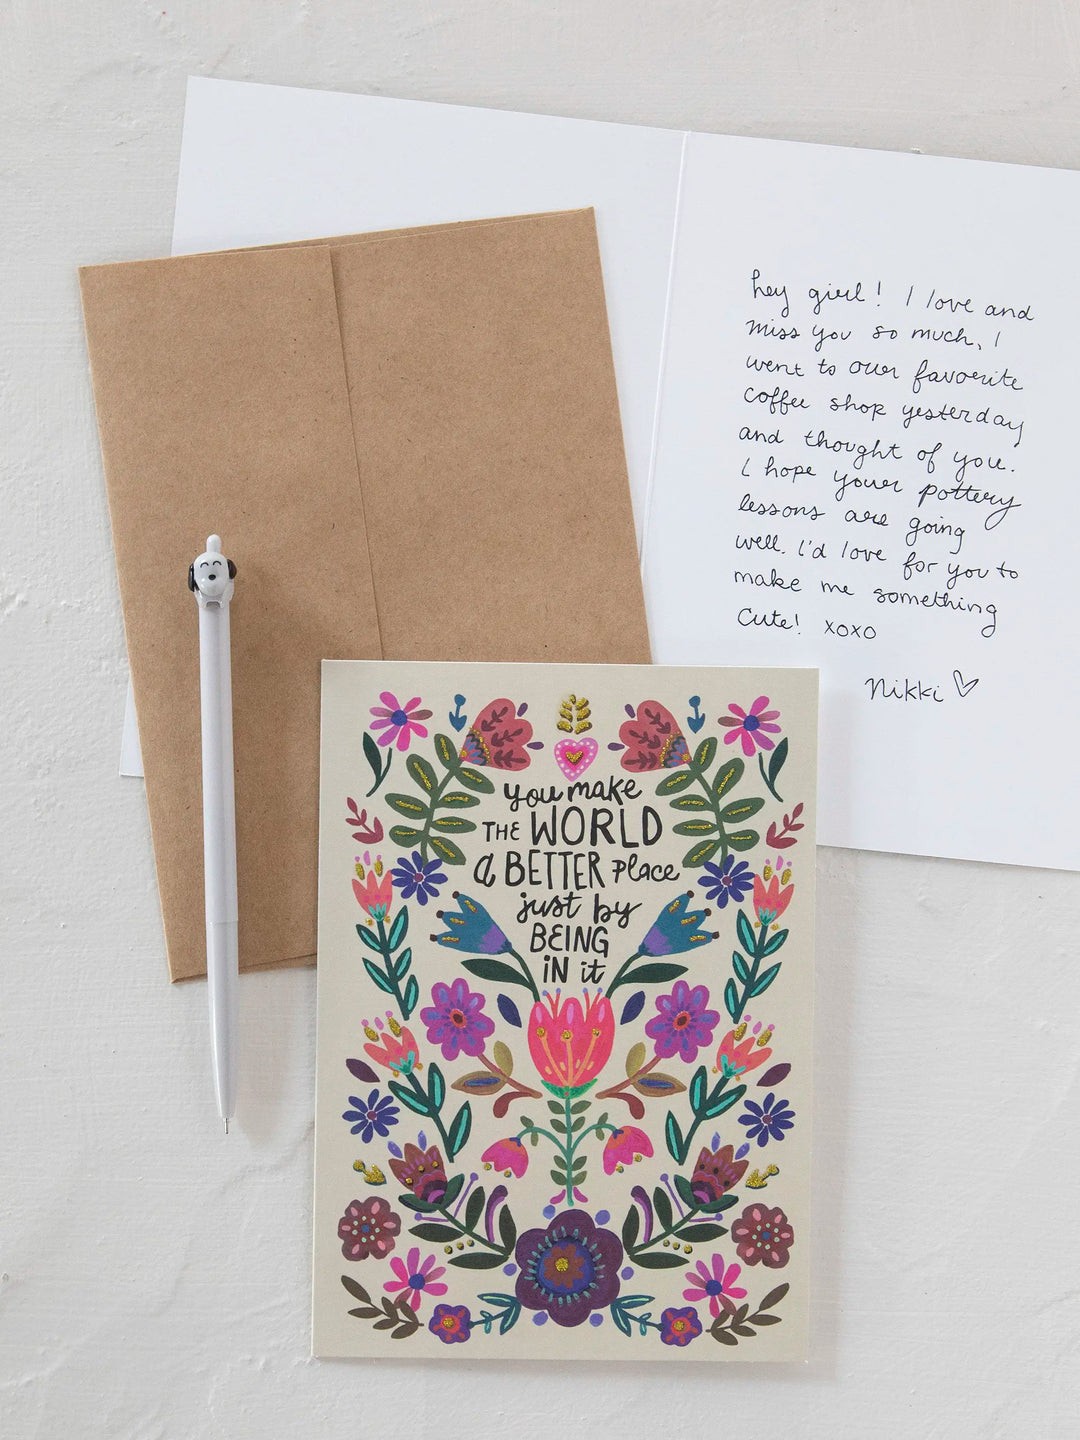 hey girl! I love and
miss you so much, I
went to our favorite
coffee shop yesterday
and thought of you.
I hope your pottery
lessons are going
well. I'd love for you to
make me something
cute! xoxo
Nikki
you make
THE WORLD
a BETTER place
just by
BEING
IN it